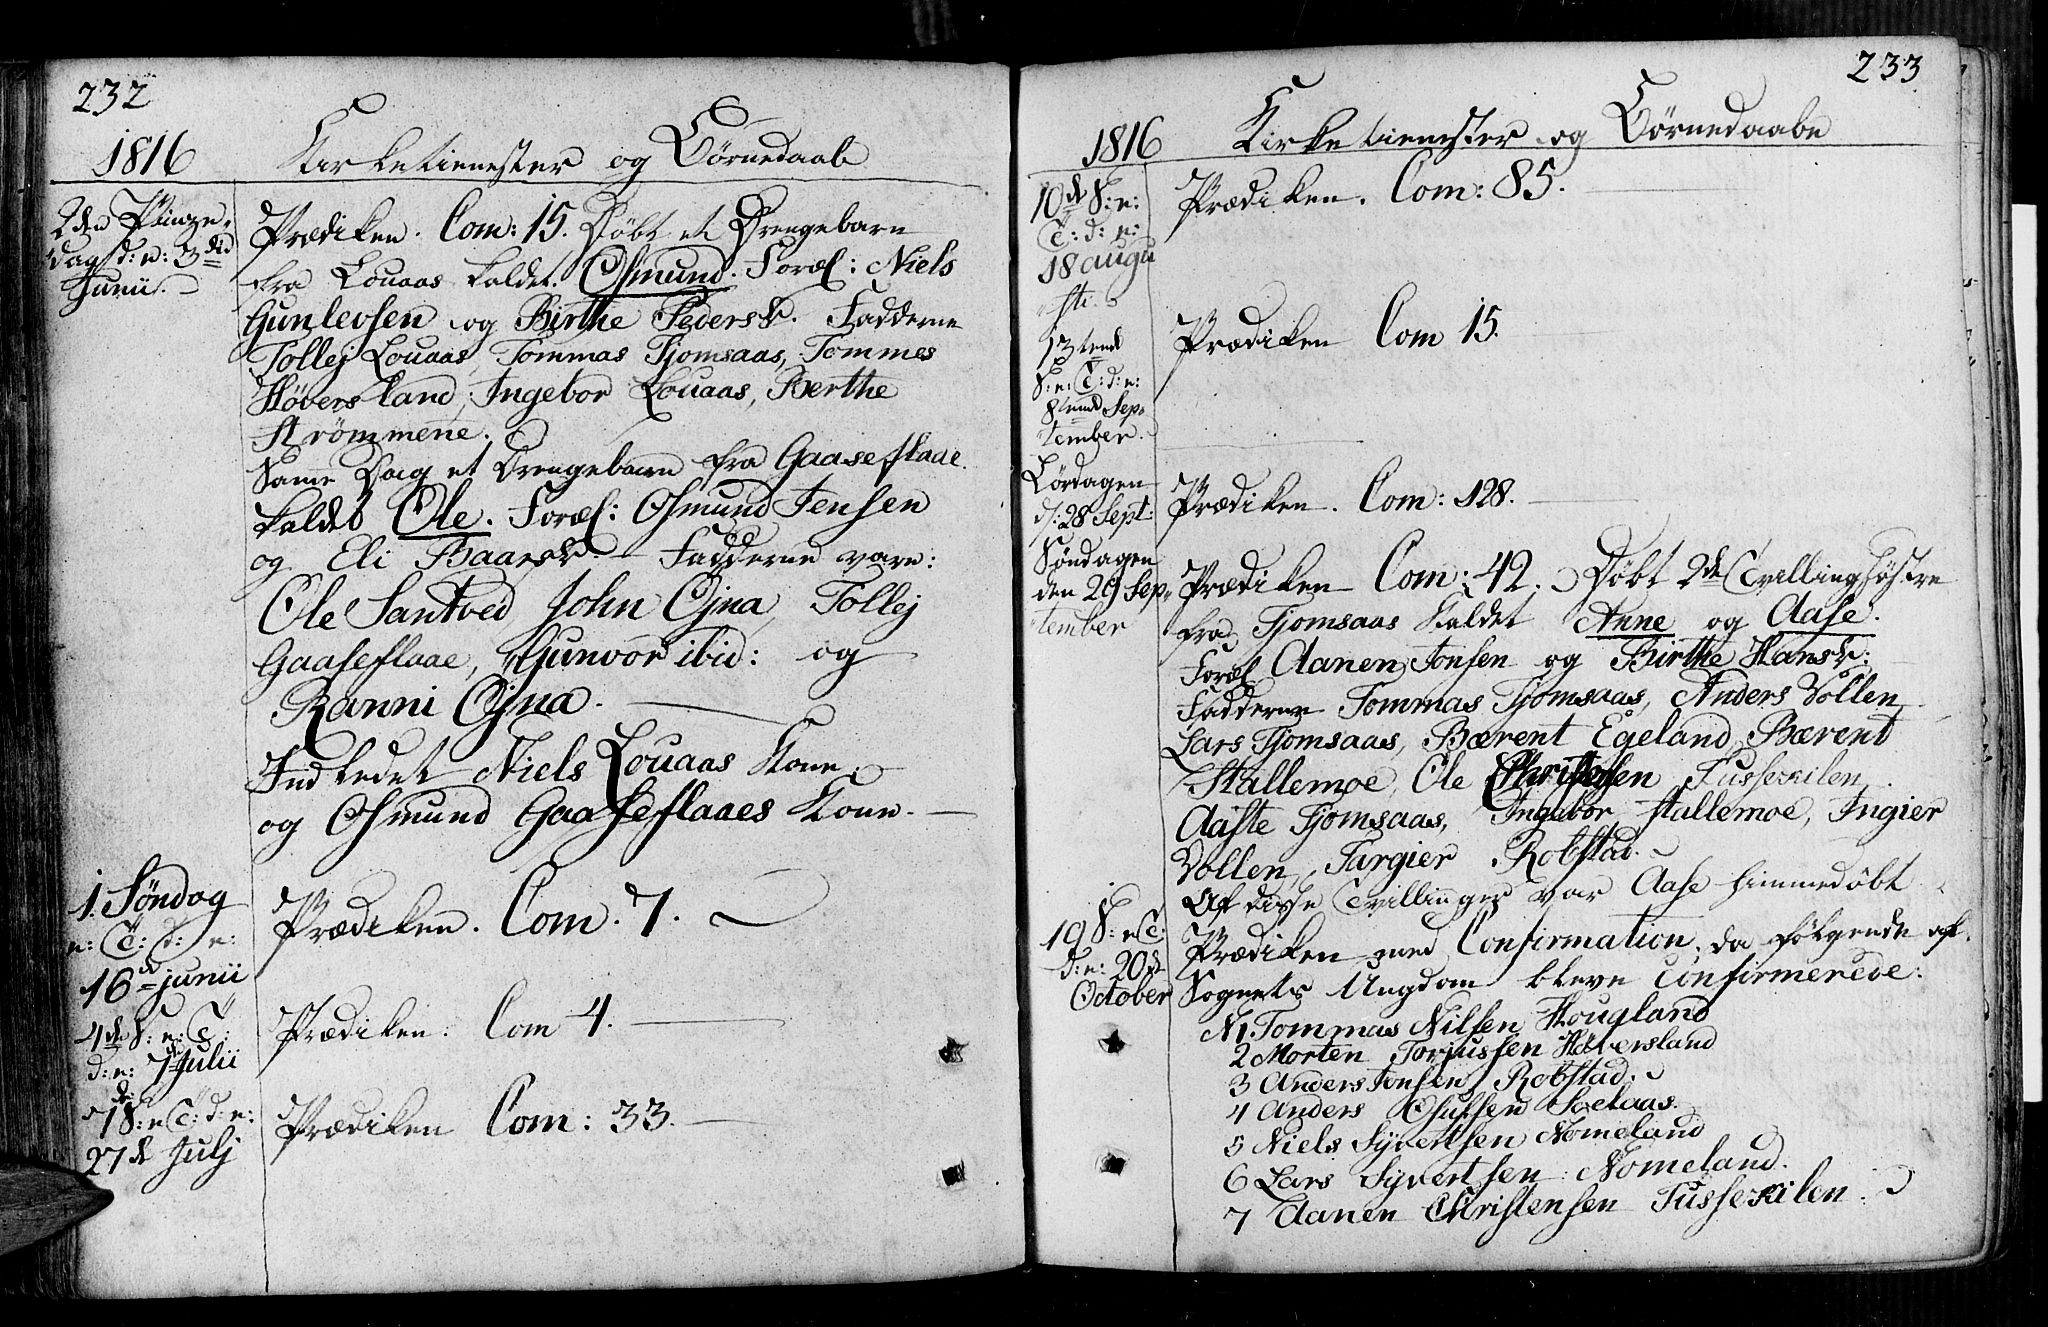 232
1816 Kirketienester og Børnedaab
2den Pintze-
dag d: e: 3die
Junii.
Prædiken. Com: 15. Døbt et Drengebarn
fra Louaas kaldet Osmund. Foræl: Niels
Gunlevsen og Birthe Pedersd. Fadderne
Tollej Louaas, Tommas Tjomsaas, Tommes
Høversland, Ingebor Louaas, Berthe
Strømmene.
Samme Dag et Drengebarn fra Gaaseflaae
kaldet Ole. Foræl: Osmund Jensen
og Eli Baarsd. Fadderne vare:
Ole Santved John Ojna, Tollej
Gaaseflaae, Gunvor ibid: og
Ranni Ojna.
Indledet Niels Louaas Kone
og Osmund Gaaseflaaes Kone.
1. Søndag
e: T: d: e:
16d junii
Prædiken. Com. 7.
4de S: e: T:
d: e: 7d Julii
Prædiken. Com 4.
7de S: e T: d: e:
27d Julj
Prædiken Com: 33.
233
1816 Kirketienester og Børnedaabe
10d S: e:
T: d: e:
18 augu
sti.
Prædiken. Com: 85.
13tend
S: e: T: d: e:
8tend Sep-
tember.
Prædiken Com 15.
Lørdagen
d: 28 Sept:
Prædiken. Com: 128.
Søndagen
den 29 Sep-
tember
Prædiken Com: 42. Døbt 2de Tvillingsøstre
fra Tjomsaas kaldet Anne og Aase.
Foræl Aanen Jonsen og Birthe Hansd:
Fadderne Tommas Tjomsaas, Anders Vollen
Lars Tjomsaas, Bærent Egeland, Bærent
Stallemoe, Ole Christensen Fussekilen
Aaste Tjomsaas, Ingebor Stallemoe, Ingier
Vollen, Targier Robstad.
Af disse Tvillinger var Aase himmedøbt
19 S: e T:
d: e: 20d
October
Prædiken med Confirmation, da følgende af
Sognets Ungdom bleve Confirmerede:
N1. Tommas Nilsen Hougland
2 Morten Torjussen Høversland
3 Anders Jonsen Robstad.
4 Anders Osufsen Loelaas.
5 Niels Syvertsen Nomeland
6 Lars Syvertsen Nomeland.
7 Aanen Christensen Fussekilen.